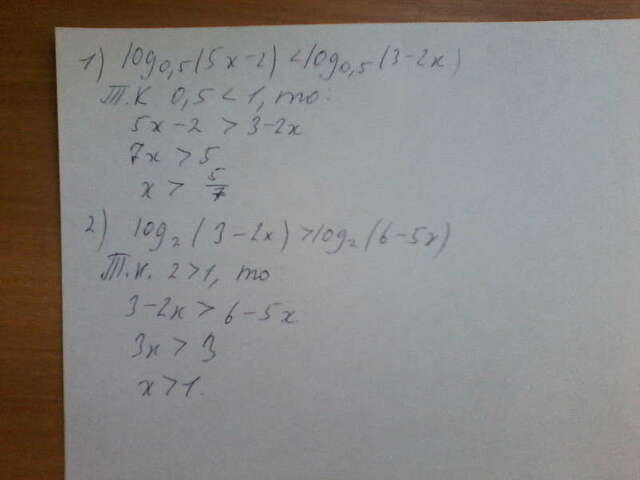 1) log₀,₅(5x-2) < log₀,₅(3-2x)
Т.к 0,5 < 1, то:
5x-2 > 3-2x
7x > 5
x > 5/7
2) log₂(3-2x) > log₂(6-5x)
Т.к. 2>1, то
3-2x > 6-5x
3x > 3
x > 1.